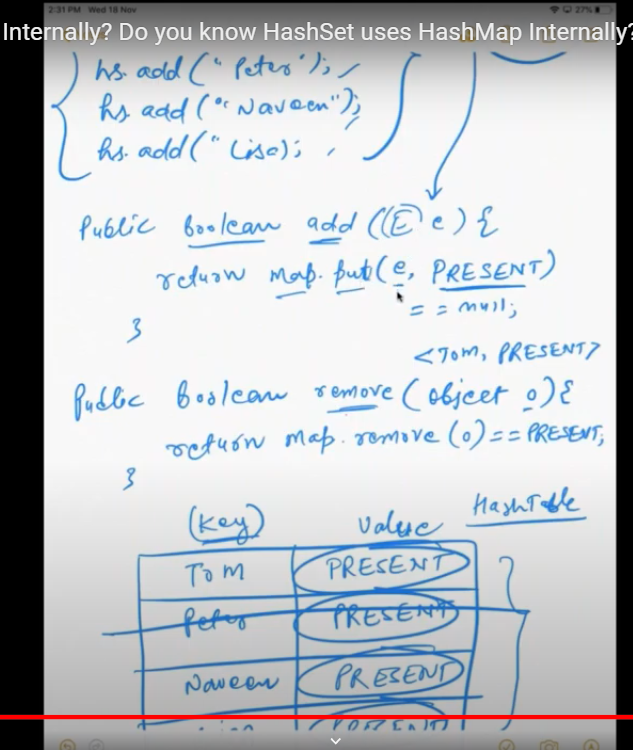 2:31 PM Wed 18 Nov 27%
Internally? Do you know HashSet uses HashMap Internally?
hs. add ("Peter");
hs. add ("Naveen");
hs. add ("Lisa);
Public boolean add ((E) e) {
return map. put(e, PRESENT)
== null;
}
<Tom, PRESENT>
Public boolean remove (object o){
return map. remove (o) == PRESENT;
}
(Key) value HashTable
Tom PRESENT
Peter PRESENT
Naveen PRESENT
PRESENT